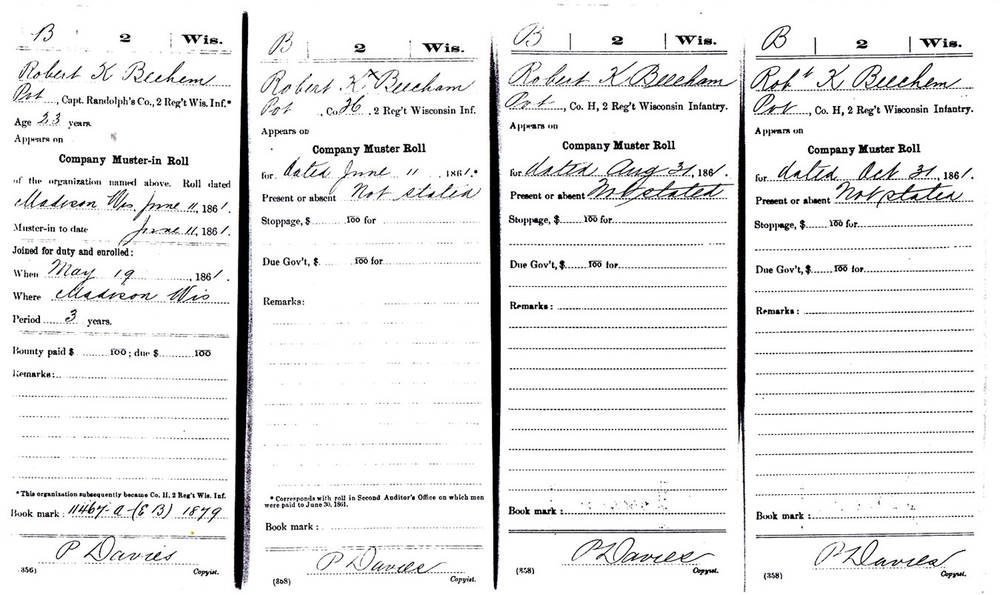 B | 2 | Wis.
Robert K Beehem
Pvt, Capt. Randolph's Co., 2 Reg't Wis. Inf.*
Age 23 years.
Appears on
Company Muster-in Roll
of the organization named above. Roll dated
Madison Wis, June 11, 1861.
Muster-in to date June 11, 1861.
Joined for duty and enrolled:
When May 19, 1861.
Where Madison Wis
Period 3 years.
Bounty paid $ 100; due $ 100
Remarks:
*This organization subsequently became Co. H, 2 Reg't Wis. Inf.
Book mark: 11467-a-(EB) 1879
P Davies
(356) Copyist.
B | 2 | Wis.
Robert K x Beecham
Pvt, Co. H, 2 Reg't Wisconsin Inf.
Appears on
Company Muster Roll
for dated June 11, 1861.*
Present or absent Not stated
Stoppage, $ 100 for
Due Gov't, $ 100 for
Remarks:
* Corresponds with roll in Second Auditor's Office on which men
were paid to June 30, 1861.
Book mark:
P Davies
(358) Copyist.
B | 2 | Wis.
Robert K Beecham
Pvt, Co. H, 2 Reg't Wisconsin Infantry.
Appears on
Company Muster Roll
for dated Aug 31, 1861.
Present or absent Not stated
Stoppage, $ 100 for
Due Gov't, $ 100 for
Remarks:
Book mark:
P Davies
(358) Copyist.
B | 2 | Wis.
Robt K Beechem
Pvt, Co. H, 2 Reg't Wisconsin Infantry.
Appears on
Company Muster Roll
for dated Oct 31, 1861.
Present or absent Not stated
Stoppage, $ 100 for
Due Gov't, $ 100 for
Remarks:
Book mark:
P Davies
(358) Copyist.